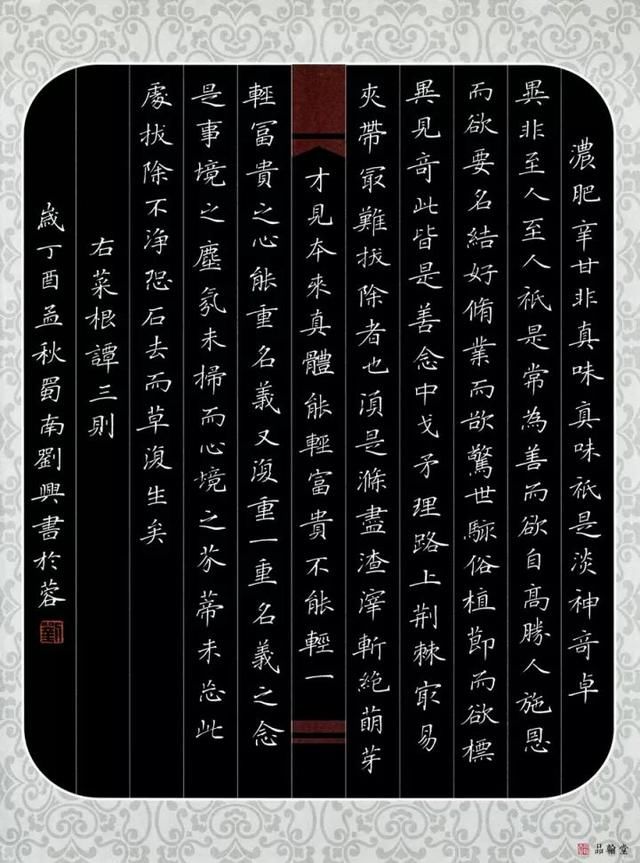 濃肥辛甘非真味真味祇是淡神奇卓
異非至人至人祇是常為善而欲自高勝人施恩
而欲要名結好脩業而欲驚世駭俗植節而欲標
異見奇此皆是善念中戈矛理路上荆棘最易
夾帶最難拔除者也須是滌盡渣滓斬絶萌芽
才見本來真體能輕富貴不能輕一
輕冨貴之心能重名義又復重一重名義之念
是事境之塵氛未掃而心境之芥蒂未忘此
處拔除不净恐石去而草復生矣
右菜根譚三則
歲丁酉孟秋蜀南劉興書於蓉
劉
品翰堂